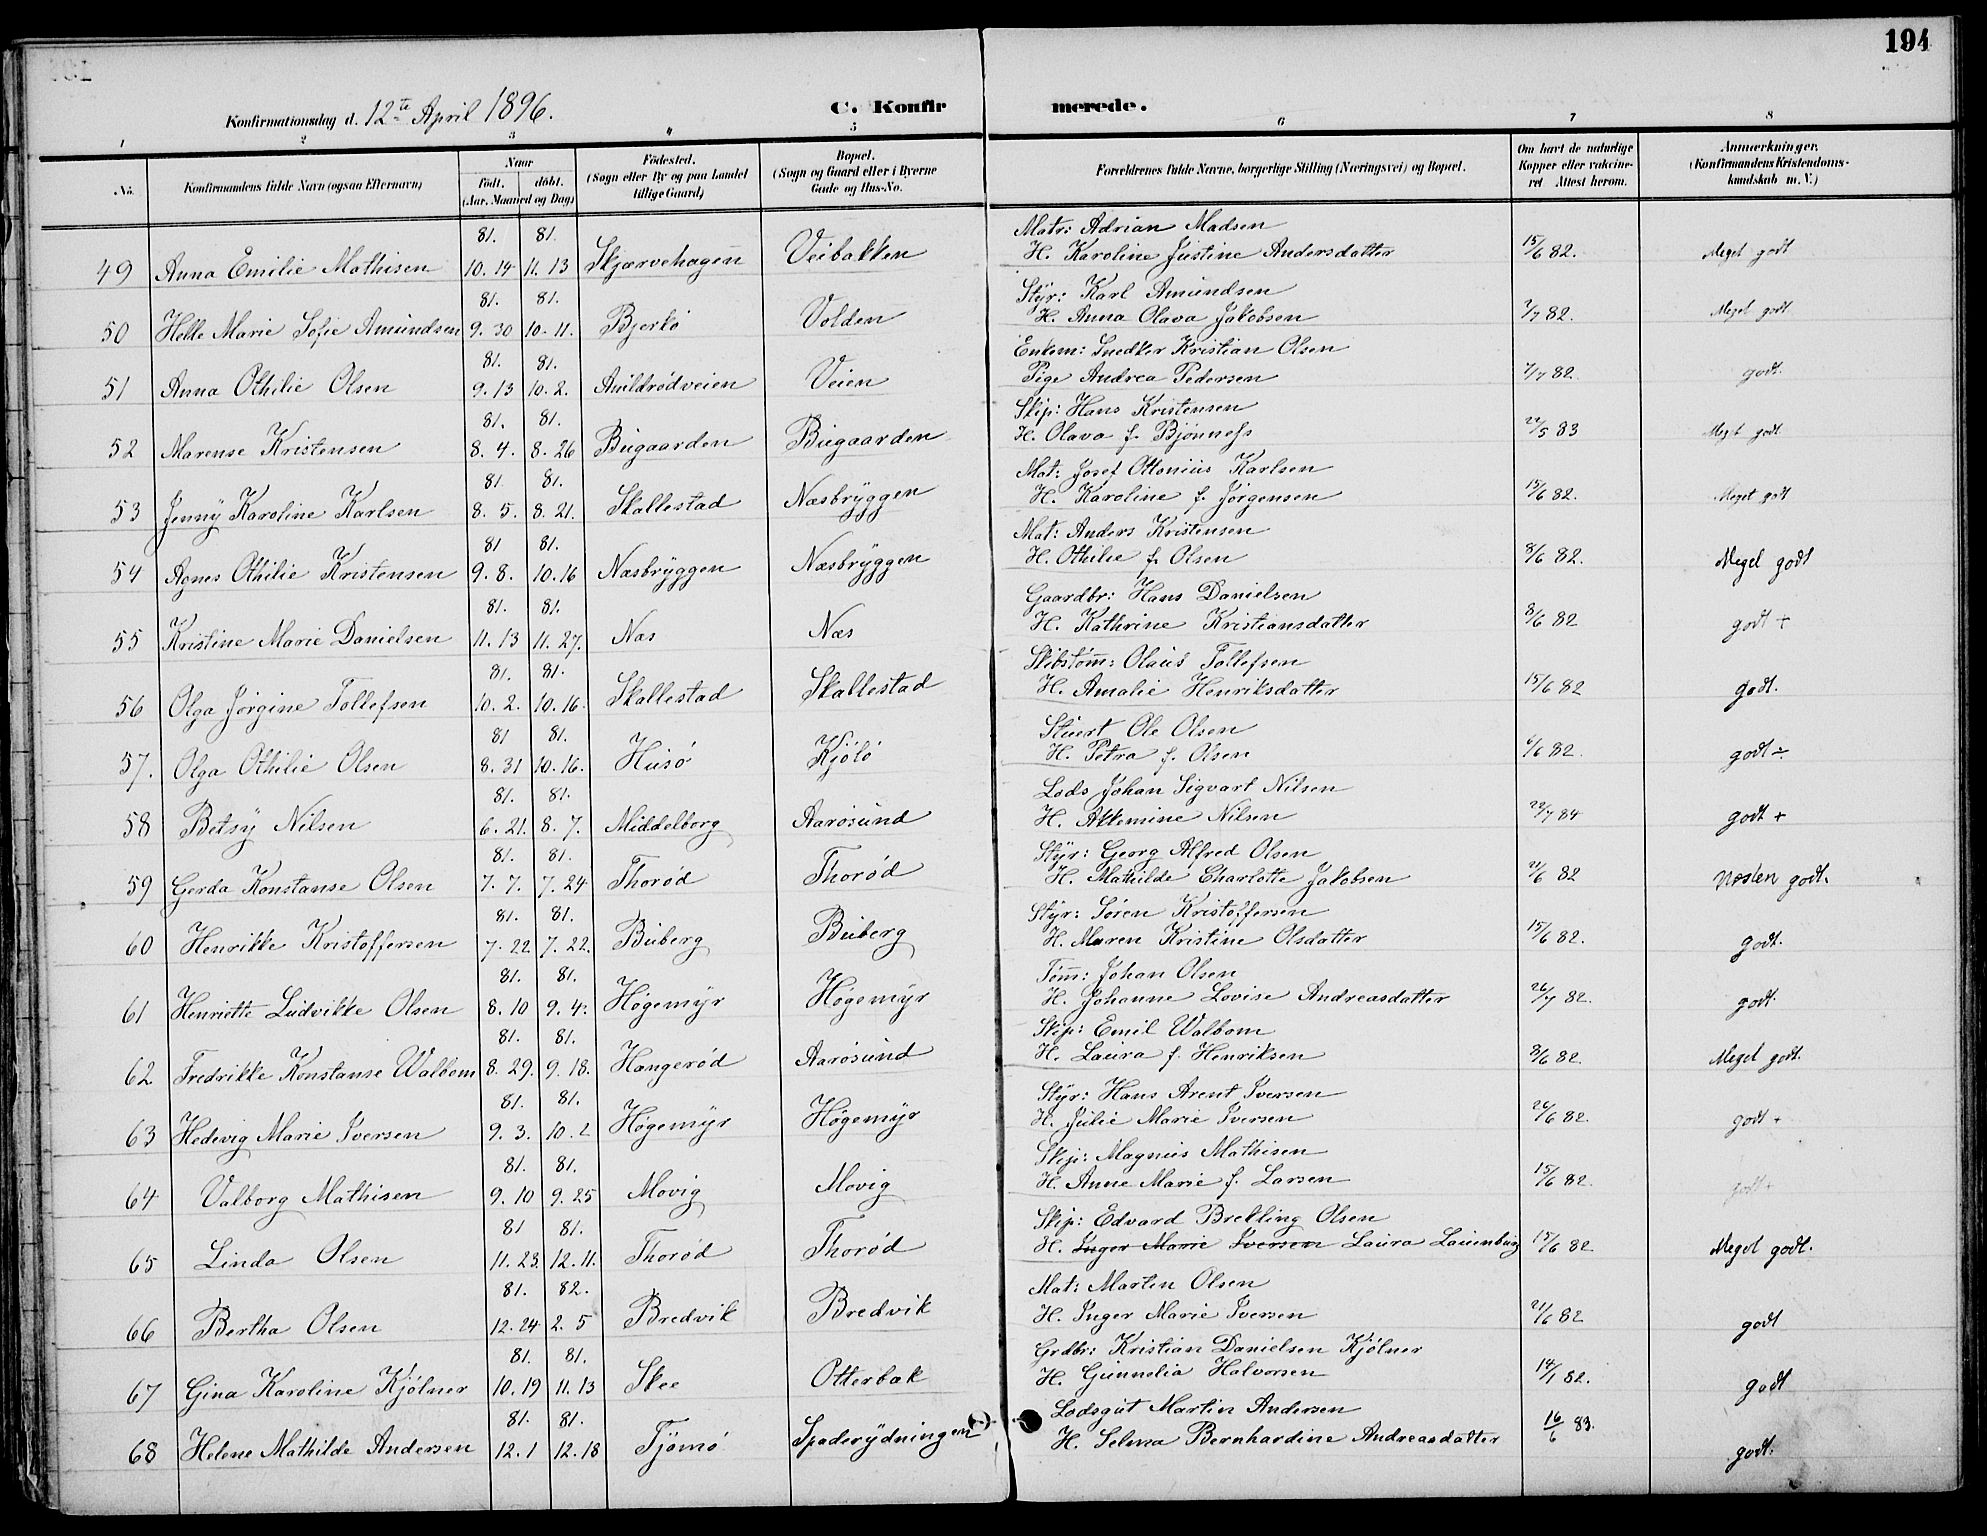 194
Konfirmationsdag d. 12te April 1896.
C. Konfirmerede.
1 2 3 4 5 6 7 8
No. Konfirmandens fulde Navn (ogsaa Efternavn) Naar født. døbt. (Aar, Maaned og Dag) Fødested. (Sogn eller By og paa Landet tillige Gaard) Bopæl. (Sogn og Gaard eller i Byerne Gade og Hus-No. Forældrenes fulde Navne, borgerlige Stilling (Næringsvei) og Bopæl. Om havt de naturlige Kopper eller vakcineret Attest herom. Anmærkninger. (Konfirmandens Kristendomskundskab m. V.)
81. 81. Matr: Adrian Madsen
49 Anna Emilie Mathisen 10. 14 11. 13 Skjærvehagen Veibakken H. Karoline Justine Andersdatter 15/6 82. Meget godt
81. 81. Styr: Karl Amundsen
50 Helle Marie Sofie Amundsen 9. 30 10. 11. Bjerkø Volden H. Anna Olava Jakobsen 7/7 82. Meget godt
81. 81. Enkem: Snedker Kristian Olsen
51 Anna Othilie Olsen 9. 13 10. 2. Veien Pige Andrea Pedersen 7/7 82. godt.
81. 81. Skip: Hans Kristensen
52 Marense Kristensen 8. 4. 8. 26 Bugaarden Bugaarden H. Olava f. Bjønness 83 Meget godt
81 81. Mat: Josef Ottonius Karlsen
53 Jenny Karoline Karlsen 8. 5. 8. 21. Skallestad Næsbryggen H. Karoline f. Jørgensen 15/6 82. Meget godt
81 81. Mat: Anders Kristensen
54 Agnes Othilie Kristensen 9. 8. 10. 16 Næsbryggen Næsbryggen H. Othilie f. Olsen 8/6 82. Meget godt
81. 81. Gaardbr: Hans Danielsen
55 Kristine Marie Danielsen 11. 13 11. 27. Næs Næs H. Kathrine Kristiansdatter 8/6 82 godt +
81. 81. Skibstøm̄: Olaus Tollefsen
56 Olga Jørgine Tollefsen 10. 2. 10. 16. Skallestad Skallestad H. Amalie Henriksdatter 15/6 82 godt.
81 81. Stuert Ole Olsen
57. Olga Othilie Olsen 8. 31 10. 16. Husø Kjølø H. Petra f. Olsen 82. godt ÷
81. 81. Lods Johan Sigvart Nilsen
58 Betsy Nilsen 6. 21. 8. 7. Middelborg Aarøsund H. Akkemine Nilsen 22/7 84 godt +
81. 81. Styr: Georg Alfred Olsen
59 Gerda Konstanse Olsen 7. 7. 7. 24 Thorød Thorød H. Mathilde Charlotte Jakobsen 21/6 82 Næsten godt.
81. 81. Styr: Søren Kristoffersen
60 Henrikke Kristoffersen 7. 22 7. 22. Buberg Buberg H. Maren Kristine Olsdatter 15/6 82. godt.
81. 81. Tøm̄: Johan Olsen
61 Henriette Ludvikke Olsen 8. 10 9. 4. Høgemyr Høgemyr H. Johanne Lovise Andreasdatter 26/7 82. godt.
81. 81. Skip: Emil Walbom
62 Fredrikke Konstanse Walbom 8. 29. 9. 18. Hangerød Aarøsund H. Laura f. Henriksen 8/6 82. Meget godt.
81. 81. Styr: Hans Arent Iversen
63 Hedevig Marie Iversen 9. 3. 10. 2 Høgemyr Høgemyr H. Julie Marie Iversen 82. godt +
81. 81. Skip: Magnus Mathisen
64 Valborg Mathisen 9. 10 9. 25 Movig Movig H. Anne Marie f. Larsen 15/6 82. godt +
81 81. Skip: Edvard Brekling Olsen
65 Linda Olsen 11. 23. 12. 11. Thorød Thorød H. Inger Marie Iversen Laura Lauenburg 15/6 82 Meget godt.
81. 82. Mat: Martin Olsen
66 Bertha Olsen 12. 24 2. 5 Bredvik Bredvik H. Inger Marie Iversen 21/6 82 godt
81. 81. Grdbr: Kristian Danielsen Kjølner
67 Gina Karoline Kjølner 10. 19 11. 13 Skee Otterbæk H. Gunnelia Halvorsen 14/1 82. godt
81. 81. Lodsgut Martin Andersen
68 Helene Mathilde Andersen 12. 1 12. 18 Tjømø Spaderydningen H. Selma Bernhardine Andreasdatter 16/6 83. godt.